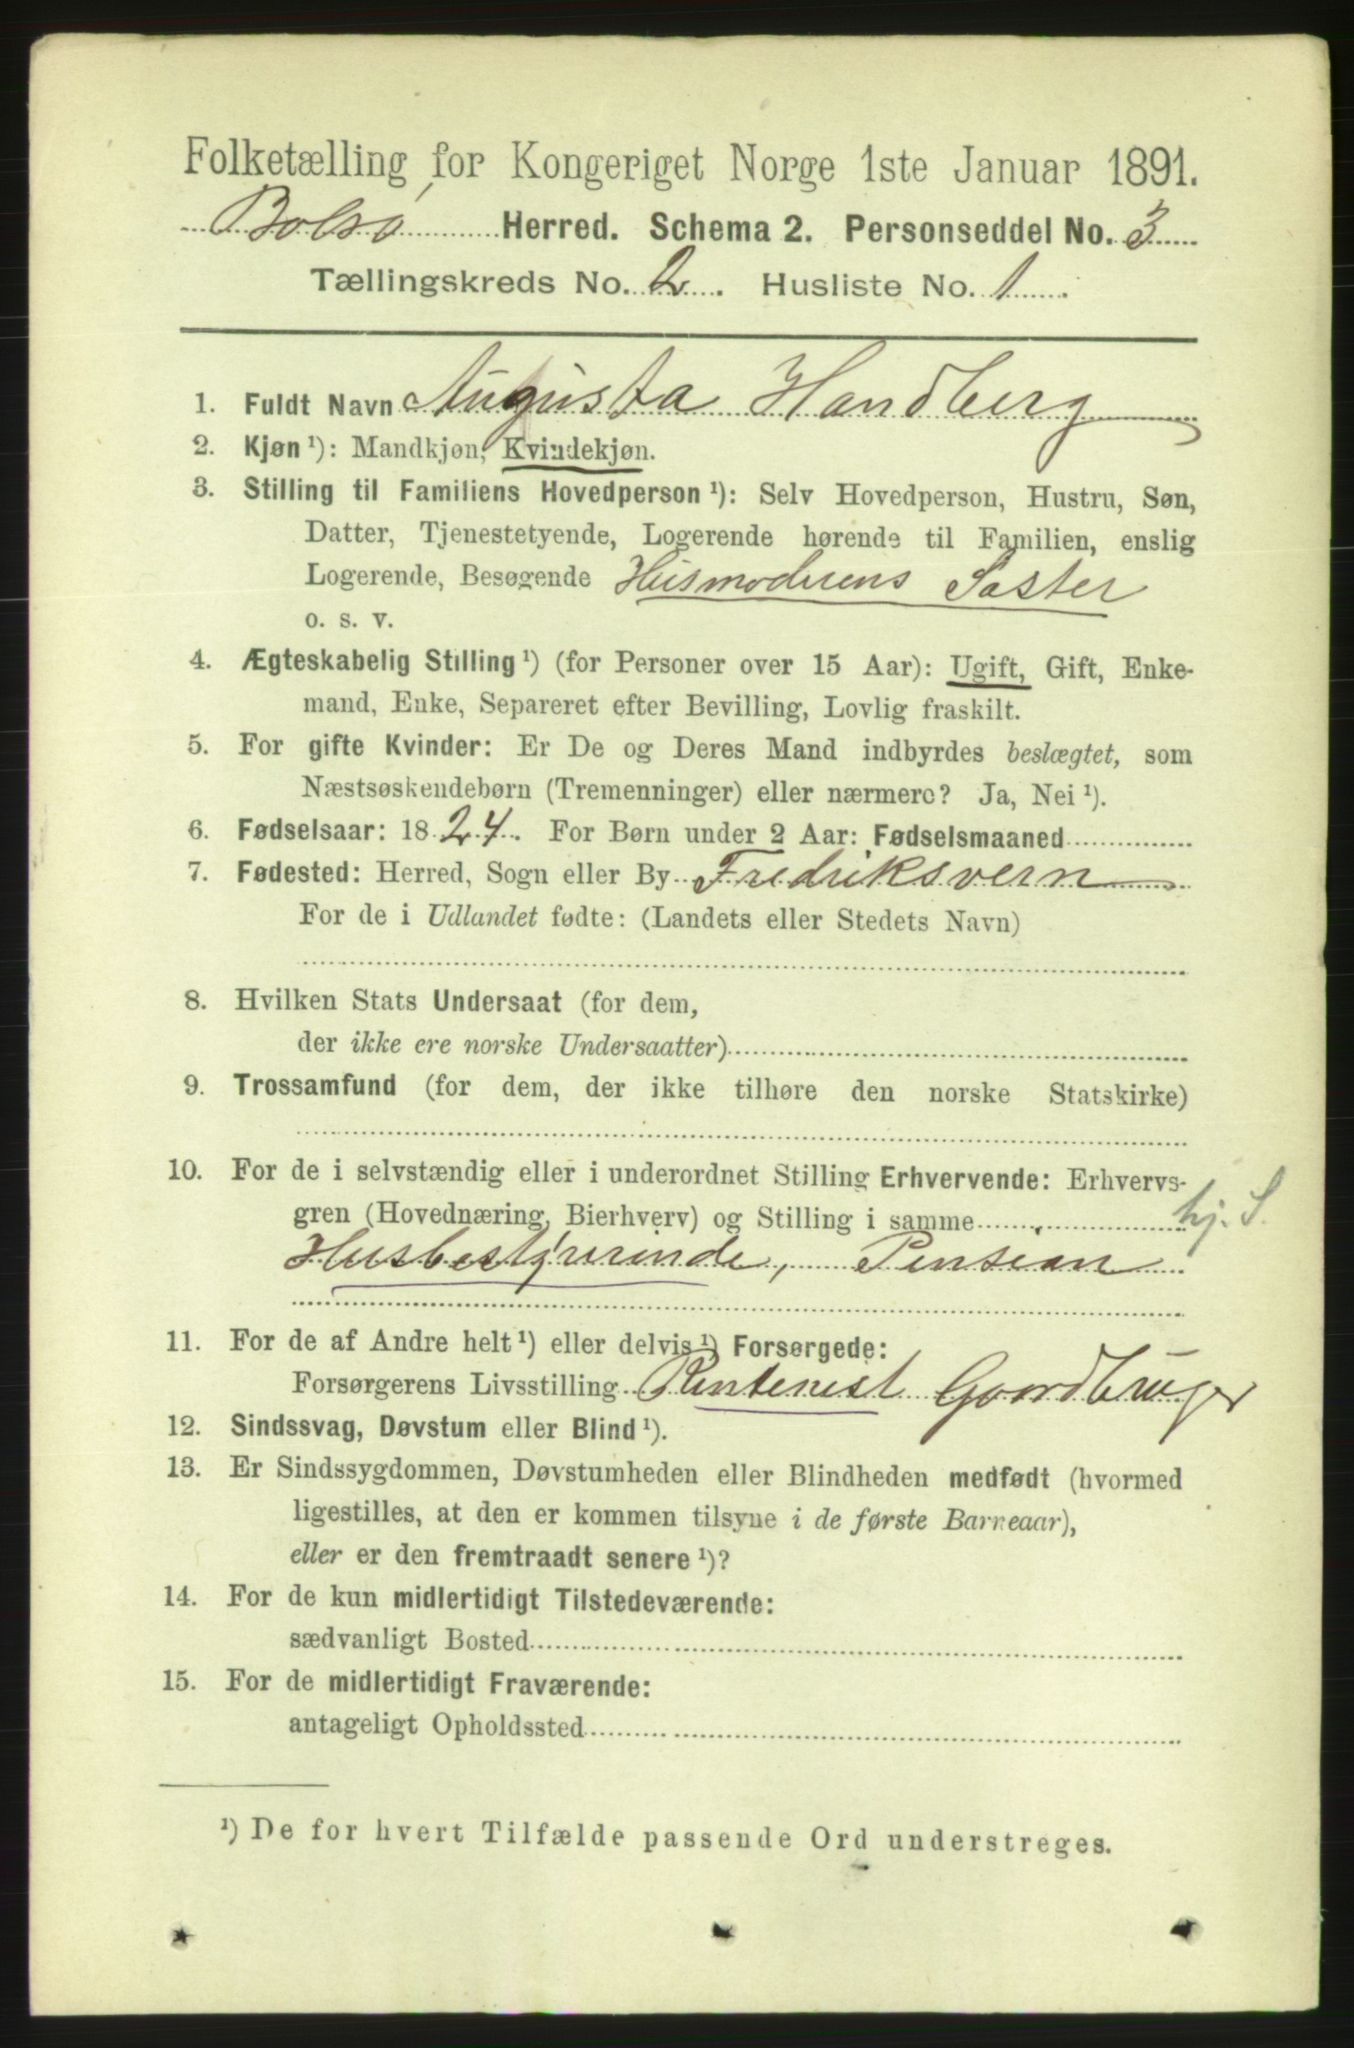 Folketælling for Kongeriget Norge 1ste Januar 1891.
Bolsø Herred. Schema 2. Personseddel No. 3
Tællingskreds No. 2. Husliste No. 1.
1. Fuldt Navn Augusta Handberg
2. Kjøn ¹): Mandkjøn, Kvindekjøn.
3. Stilling til Familiens Hovedperson ¹): Selv Hovedperson, Hustru, Søn,
Datter, Tjenestetyende, Logerende hørende til Familien, enslig
Logerende, Besøgende Husmoderens Søster
o. s. v.
4. Ægteskabelig Stilling ¹) (for Personer over 15 Aar): Ugift, Gift, Enke-
mand, Enke, Separeret efter Bevilling, Lovlig fraskilt.
5. For gifte Kvinder: Er De og Deres Mand indbyrdes beslægtet, som
Næstsøskendebørn (Tremenninger) eller nærmere? Ja, Nei ¹).
6. Fødselsaar: 1824. For Børn under 2 Aar: Fødselsmaaned
7. Fødested: Herred, Sogn eller By Fredriksvern
For de i Udlandet fødte: (Landets eller Stedets Navn)
8. Hvilken Stats Undersaat (for dem,
der ikke ere norske Undersaatter)
9. Trossamfund (for dem, der ikke tilhøre den norske Statskirke)
10. For de i selvstændig eller i underordnet Stilling Erhvervende: Erhvervs-
gren (Hovednæring, Bierhverv) og Stilling i samme hj. S.
Husbestyrerinde, Pension
11. For de af Andre helt ¹) eller delvis ¹) Forsørgede:
Forsørgerens Livsstilling Rentenist Gaardbruger
12. Sindssvag, Døvstum eller Blind ¹).
13. Er Sindssygdommen, Døvstumheden eller Blindheden medfødt (hvormed
ligestilles, at den er kommen tilsyne i de første Barneaar),
eller er den fremtraadt senere ¹)?
14. For de kun midlertidigt Tilstedeværende:
sædvanligt Bosted
15. For de midlertidigt Fraværende:
antageligt Opholdssted
¹) De for hvert Tilfælde passende Ord understreges.